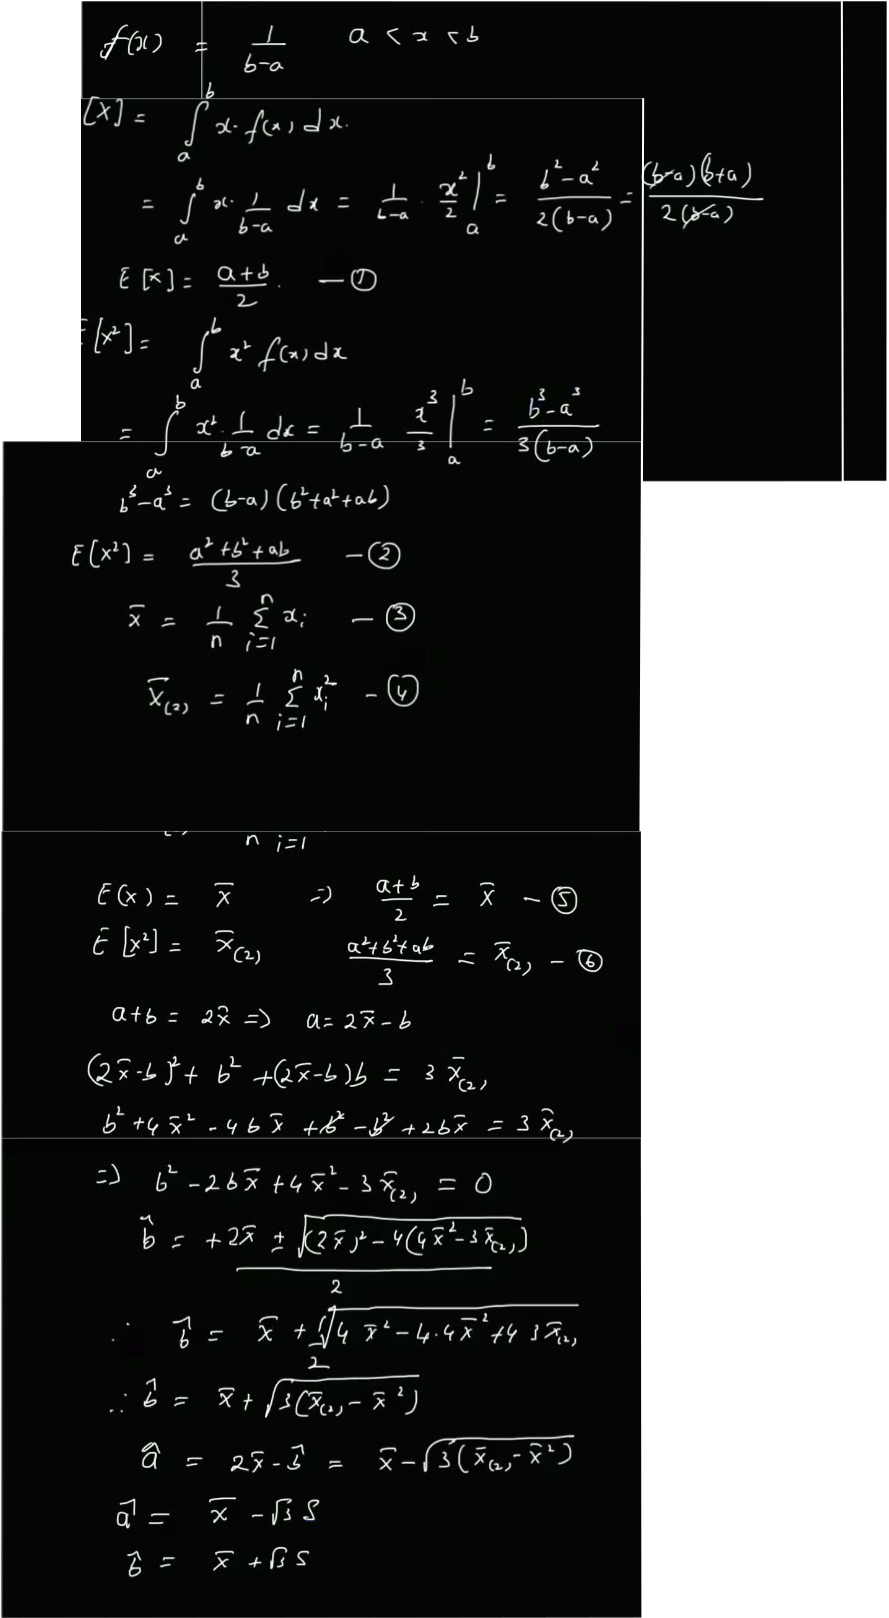 f(x) = 1/(b-a)   a < x < b
[X] = ∫_a^b x. f(x) dx.
= ∫_a^b x. 1/(b-a) dx = 1/(b-a) . x²/2 |_a^b = (b²-a²)/(2(b-a)) = ((b-a)(b+a))/(2(b-a))
E[x] = (a+b)/2. — ①
E[x²] = ∫_a^b x² f(x) dx
= ∫_a^b x². 1/(b-a) dx = 1/(b-a) x³/3 |_a^b = (b³-a³)/(3(b-a))
b³-a³ = (b-a)(b²+a²+ab)
E[x²] = (a²+b²+ab)/3 — ②
x̄ = 1/n Σ_{i=1}^n x_i — ③
x̄_(2) = 1/n Σ_{i=1}^n x_i² - ④
n i=1
E(x) = x̄ ⇒ (a+b)/2 = x̄ - ⑤
E[x²] = x̄_(2)   (a²+b²+ab)/3 = x̄_(2) - ⑥
a+b = 2x̄ ⇒ a = 2x̄ - b
(2x̄-b)² + b² + (2x̄-b)b = 3 x̄_(2)
b² + 4x̄² - 4bx̄ + b² - b² + 2bx̄ = 3 x̄_(2)
⇒ b² - 2bx̄ + 4x̄² - 3x̄_(2) = 0
b̂ = (+2x̄ ± √((2x̄)² - 4(4x̄² - 3x̄_(2))))/2
∴ b̂ = x̄ + √(4x̄² - 4.4x̄² + 4 3x̄_(2))/2
∴ b̂ = x̄ + √(3(x̄_(2) - x̄²))
â = 2x̄ - b̂ = x̄ - √(3(x̄_(2) - x̄²))
â = x̄ - √3 S
b̂ = x̄ + √3 S